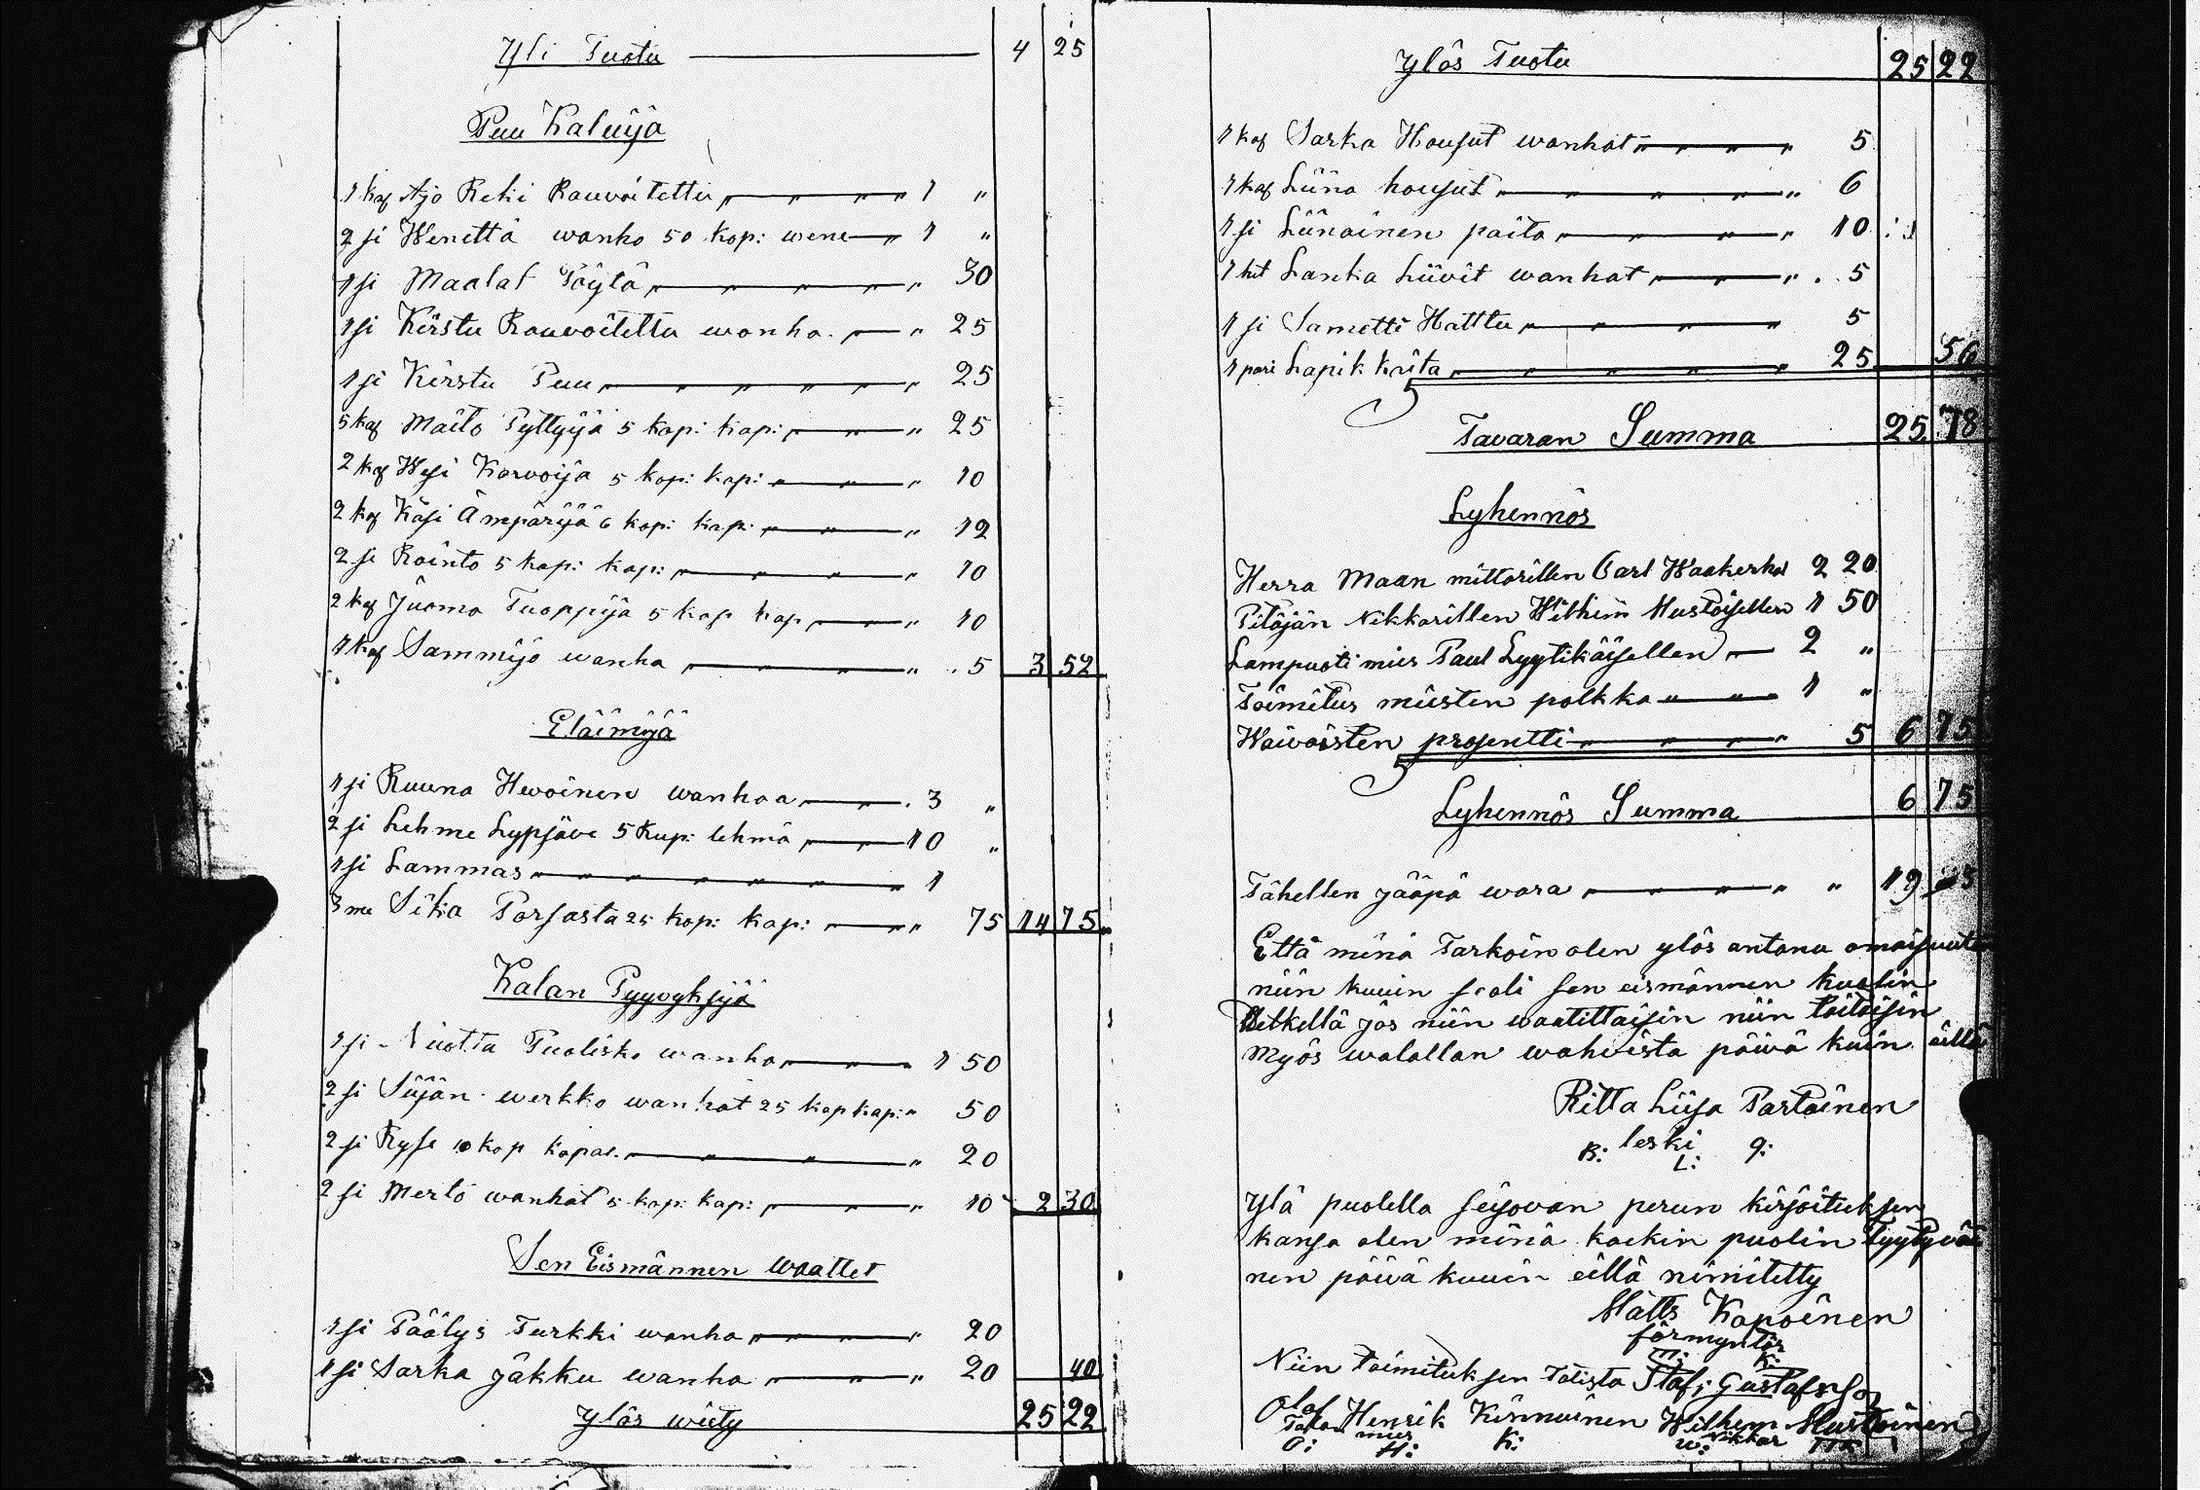 Yli Tuotu 4 25
Puu Kaluija
1 kap Ajo Reki Rauvoitettu " " " " 1 "
2 si Wenettä wanho 50 kop: wene " 1 "
1 si Maalat Pöytä " " " " " 30
1 si Kirstu Rauvoitettu wanha. " " 25
1 si Kirstu Puu " " " " " " 25
5 kap Maito Pyttyjä 5 kop: kap: " " " 25
2 kap Wesi Korvoija 5 kop: kap: " " " 10
2 kap Käsi Ämpärijä 6 kop: kap: " " " 12
2 si Rainto 5 kop: kap: " " " " 10
2 kap Juoma Tuoppija 5 kop kap " " " 10
1 kap Sammijo wanha " " " " 5 3 52
Eläimijä
1 si Ruuna Hevoinen wanhaa " . 3 "
2 si Lehme Lypsäve 5 Rup: lehmä " " 10 "
1 si Lammas " " " " " " " 1
3 me Sika Porsasta 25 kop: kap: " " 75 14 75
Kalan Pyyvyksijä
1 si Nuotta Puolisko wanha " " " 1 50
2 si Siijän werkko wanhat 25 kop kap: " 50
2 si Ryse 10 kop kapal. " " " " 20
2 si Merto wanhat 5 kop: kap: " " " 10 2 30
Sen Eismännen Waattet
1 si Päälys Turkki wanha " " " " 20
1 si Sarka jäkku wanha " " " 20 40
Ylös wiety 25 22
Ylös Tuotu 25 22
1 kap Sarka Housut wanhat " " " " 5
1 kap Liina housut " " " " " 6
1 si Liinainen paita " " " " 10
1 kit Lanka Liivit wanhat " " " . 5
1 si Sametti Hatttu " " " " 5
1 pari Lapik kaita " " " " " 25 56
Tavaran Summa 25 78
Lyhennös
Herra Maan mittarillen Carl Waakerhol 2 20
Pitäjän Nikkarillen Wilhem Mustoisellen 1 50
Lampuoti mies Paul Lyytikäisellen " 2 "
Toimitus miesten palkka " " " 1 "
Waivaisten prosentti " " " " 5 6 75
Lyhennös Summa 6 75
Tähellen jääpä wara " " " " " 19
Että minä Tarkoin olen ylös antanu omaisuute
niin kuuin se oli sen eismännen kuolin
Hetkellä jos niin waatittaisin niin toitaisin
Myös walallan wahvista päivä kuin eillä
Ritta Liisa Partainen
leski
R: L: P:
Ylä puolella seisovan perun kirjoituksen
kansa olen minä kaekin puolin Tyytyväi
nen päivä kuuin eillä nimitetty
Matts Kapoinen
förmyntär
M: K:
Niin toimituksen Totista Staf: Gustafsso
Olof Henrik Kinnuinen Wilhem Mustoinen
Talon mies Nikkar
O: H: K: W: M